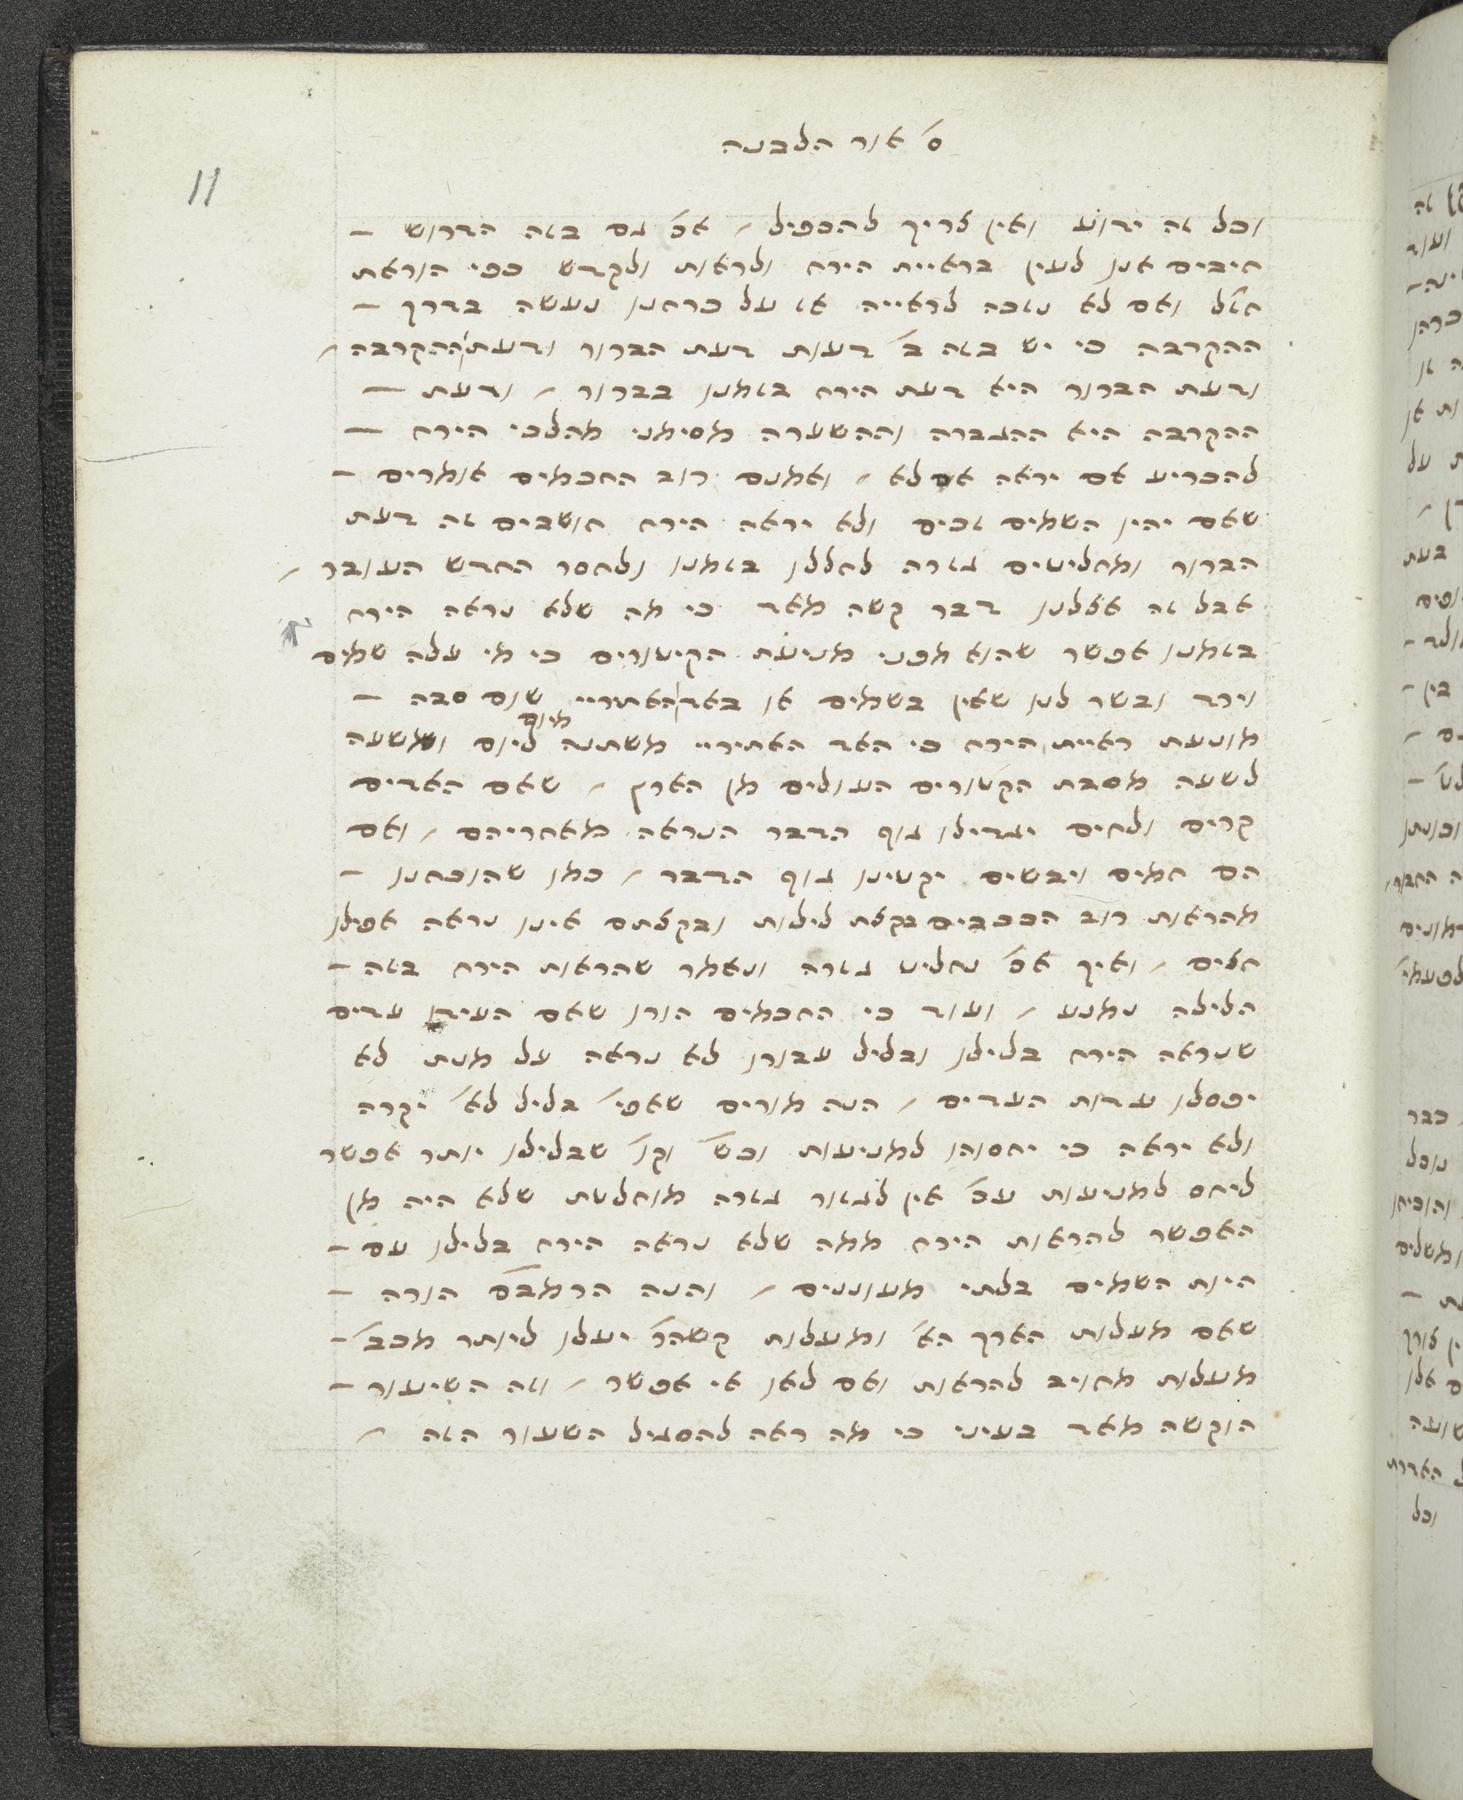 ס׳ אור הלבנה
11
וכל זה ידוע ואין צריך להכפיל / א״כ גם בזה הדרוש –
חיבים אנו לעין בראיית הירח ולראות ולקדש כפי הוראת
חז״ל ואם לא נזכה לראייה אז על כרחנו נעשה בדרך –
ההקרבה כי יש בזה ב׳ דעות דעת הברור ודעת ההקרבה /
ודעת הברור היא דעת הירח בזמנו בברור / ודעת –
ההקרבה היא ההגברה וההשערה מסימני מהלכי הירח –
להכריע אם יראה אם לא / ואמנם רוב החכמים אומרים –
שאם יהיו השמים זכים ולא יראה הירח חושבים זה דעת
הברור ומחליטים גזרה לחללו בזמנו ולחסר החדש העובר /
אבל זה אצלנו דבר קשה מאד כי מה שלא נראה הירח
בזמנו אפשר שהוא מפני מניעת הקיטורים כי מי עלה שמים
וירד ובשר לנו שאין בשמים או באד האויריי שום סבה –
מונעת ראיית הירח כי האד האויריי משתנה מיום ליום ומשעה
לשעה מסבת הקטורים העולים מן הארץ / שאם האדים
קרים ולחים יגדילו גוף הדבר הנראה מאחריהם / ואם
הם חמים ויבשים יקטינו גוף הדבר / כמו שהוכחנו –
מהראות רוב הככבים בקצת לילות ובקצתם אינו נראה אפילו
חצים / ואיך א״כ נחליט גזרה ונאמר שהראות הירח בזה –
הלילה נמנע / ועוד כי החכמים הורו שאם העידו עדים
שנראה הירח בלילו ובליל עבורו לא נראה על מנת לא
יפסלו עדות העדים / הנה מורים שאפי׳ בליל לא׳ יקרה
ולא יראה כי יחסוהו למניעות וכ״ש וק״ו שבלילו יותר אפשר
ליחס למניעות עכ״ אין לגזור גזרה מוחלטת שלא היה מן
האפשר להראות הירח ממה שלא נראה הירח בלילו עם –
היות השמים בלתי מעוננים / והנה הרמב״ם הורה –
שאם מעלות הארך הא׳ ומעלות קשה״ר יעלו ליותר מכ״ב –
מעלות מחויב להראות ואם לאו אי אפשר / וזה השיעור –
הוקשה מאד בעיני כי מה ראה להסגיל השעור הזה /